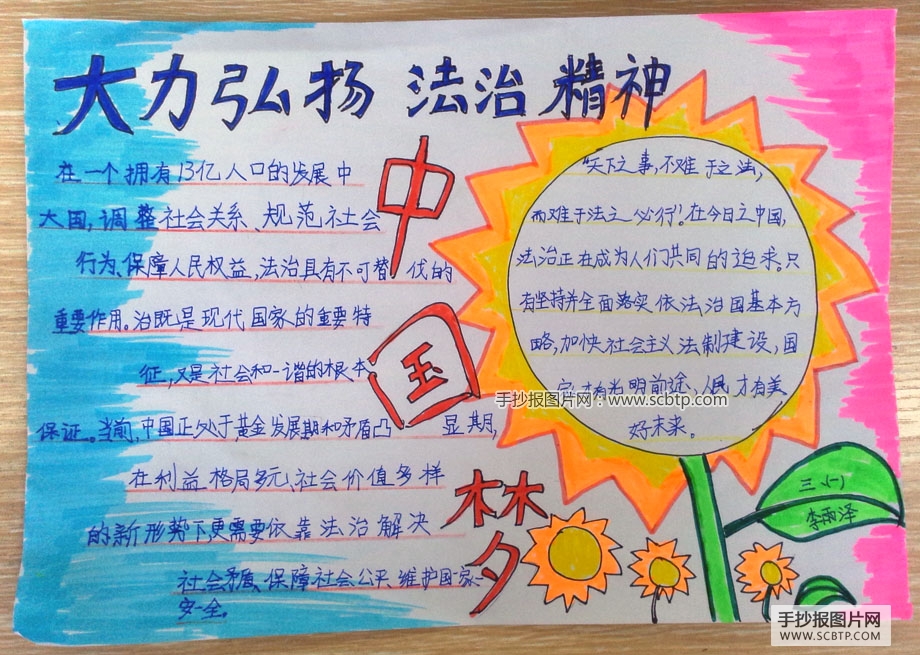 大力弘扬 法治精神
中国梦
在一个拥有13亿人口的发展中
大国,调整社会关系、规范社会
行为、保障人民权益,法治具有不可替代的
重要作用。治既是现代国家的重要特
征,又是社会和一谐的根本
保证。当前,中国正处于黄金发展期和矛盾凸显期,
在利益格局多元、社会价值多样
的新形势下更需要依靠法治解决
社会矛盾、保障社会公平、维护国家
安全。
“天下之事,不难于立法,
而难于法之必行”!在今日之中国,
法治正在成为人们共同的追求。只
有坚持并全面落实依法治国基本方
略,加快社会主义法制建设,国
家才有光明前途、人民才有美
好未来。
手抄报图片网:www.scbtp.com
三(一)
李雨泽
手抄报图片网
WWW.SCBTP.COM